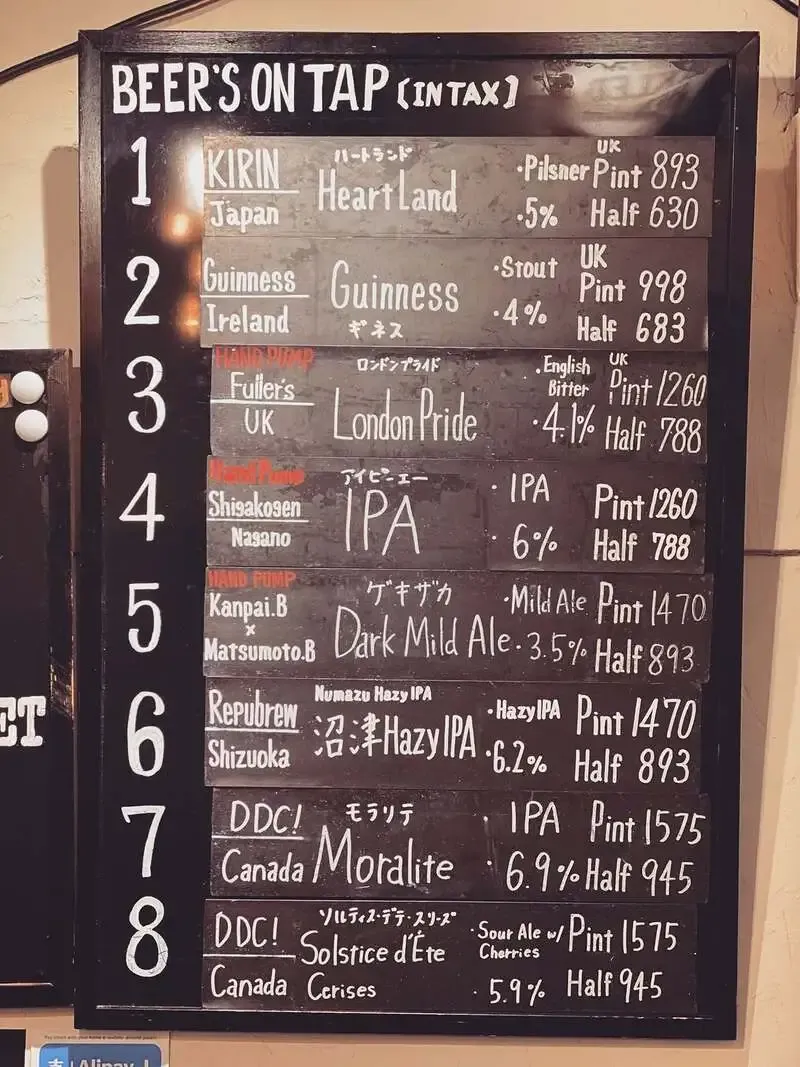 BEER'S ON TAP [IN TAX]
1
KIRIN
Japan
ハートランド
HeartLand
・Pilsner
・5%
UK
Pint 893
Half 630
2
Guinness
Ireland
Guinness
ギネス
・Stout
・4%
UK
Pint 998
Half 683
3
HAND PUMP
Fuller's
UK
ロンドンプライド
London Pride
・English
Bitter
・4.1%
UK
Pint 1260
Half 788
4
Hand Pump
Shigakogen
Nagano
アイピーエー
IPA
・IPA
・6%
Pint 1260
Half 788
5
HAND PUMP
Kanpai.B
×
Matsumoto.B
ゲキザカ
Dark Mild Ale
・Mild Ale
・3.5%
Pint 1470
Half 893
6
Repubrew
Shizuoka
Numazu Hazy IPA
沼津Hazy IPA
・Hazy IPA
・6.2%
Pint 1470
Half 893
7
DDC!
Canada
モラリテ
Moralite
・IPA
・6.9%
Pint 1575
Half 945
8
DDC!
Canada
ソルティス・デテ・スリーズ
Solstice d'Éte
Cerises
・Sour Ale w/
Cherries
・5.9%
Pint 1575
Half 945
ET
支 Alipay